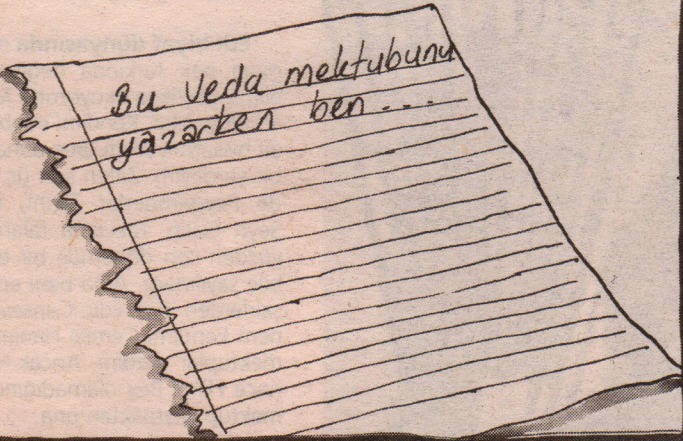 Bu Veda mektubunu
yazarken ben ....